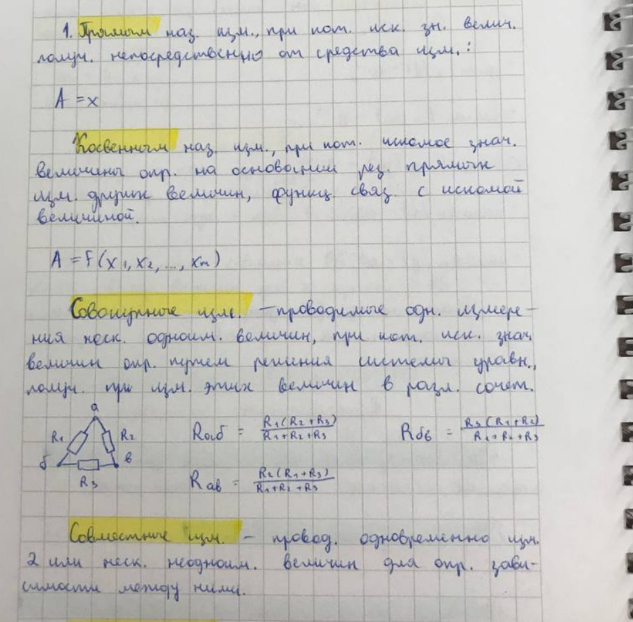 1. Прямым наз. изм., при кот. иск. зн. велич.
получ. непосредственно от средства изм.:
A = x
Косвенным наз. изм., при кот. искомое знач.
величины опр. на основании рез. прямых
изм. других величин, функц. связ. с искомой
величиной.
A = F(x₁, x₂, ..., xₘ)
Совокупные изм. – проводимые одн. измере-
ния неск. одноим. величин, при кот. иск. знач.
величин опр. путем решения системы уравн.,
получ. при изм. этих величин в разл. сочет.
a
R₁ R₂
б в
R₃
Rаб = R₁(R₂+R₃) / R₁+R₂+R₃ Rбв = R₃(R₁+R₂) / R₁+R₂+R₃
Rав = R₂(R₁+R₃) / R₁+R₂+R₃
Совместные изм. – провод. одновременно изм.
2 или неск. неодноим. величин для опр. зави-
симости между ними.